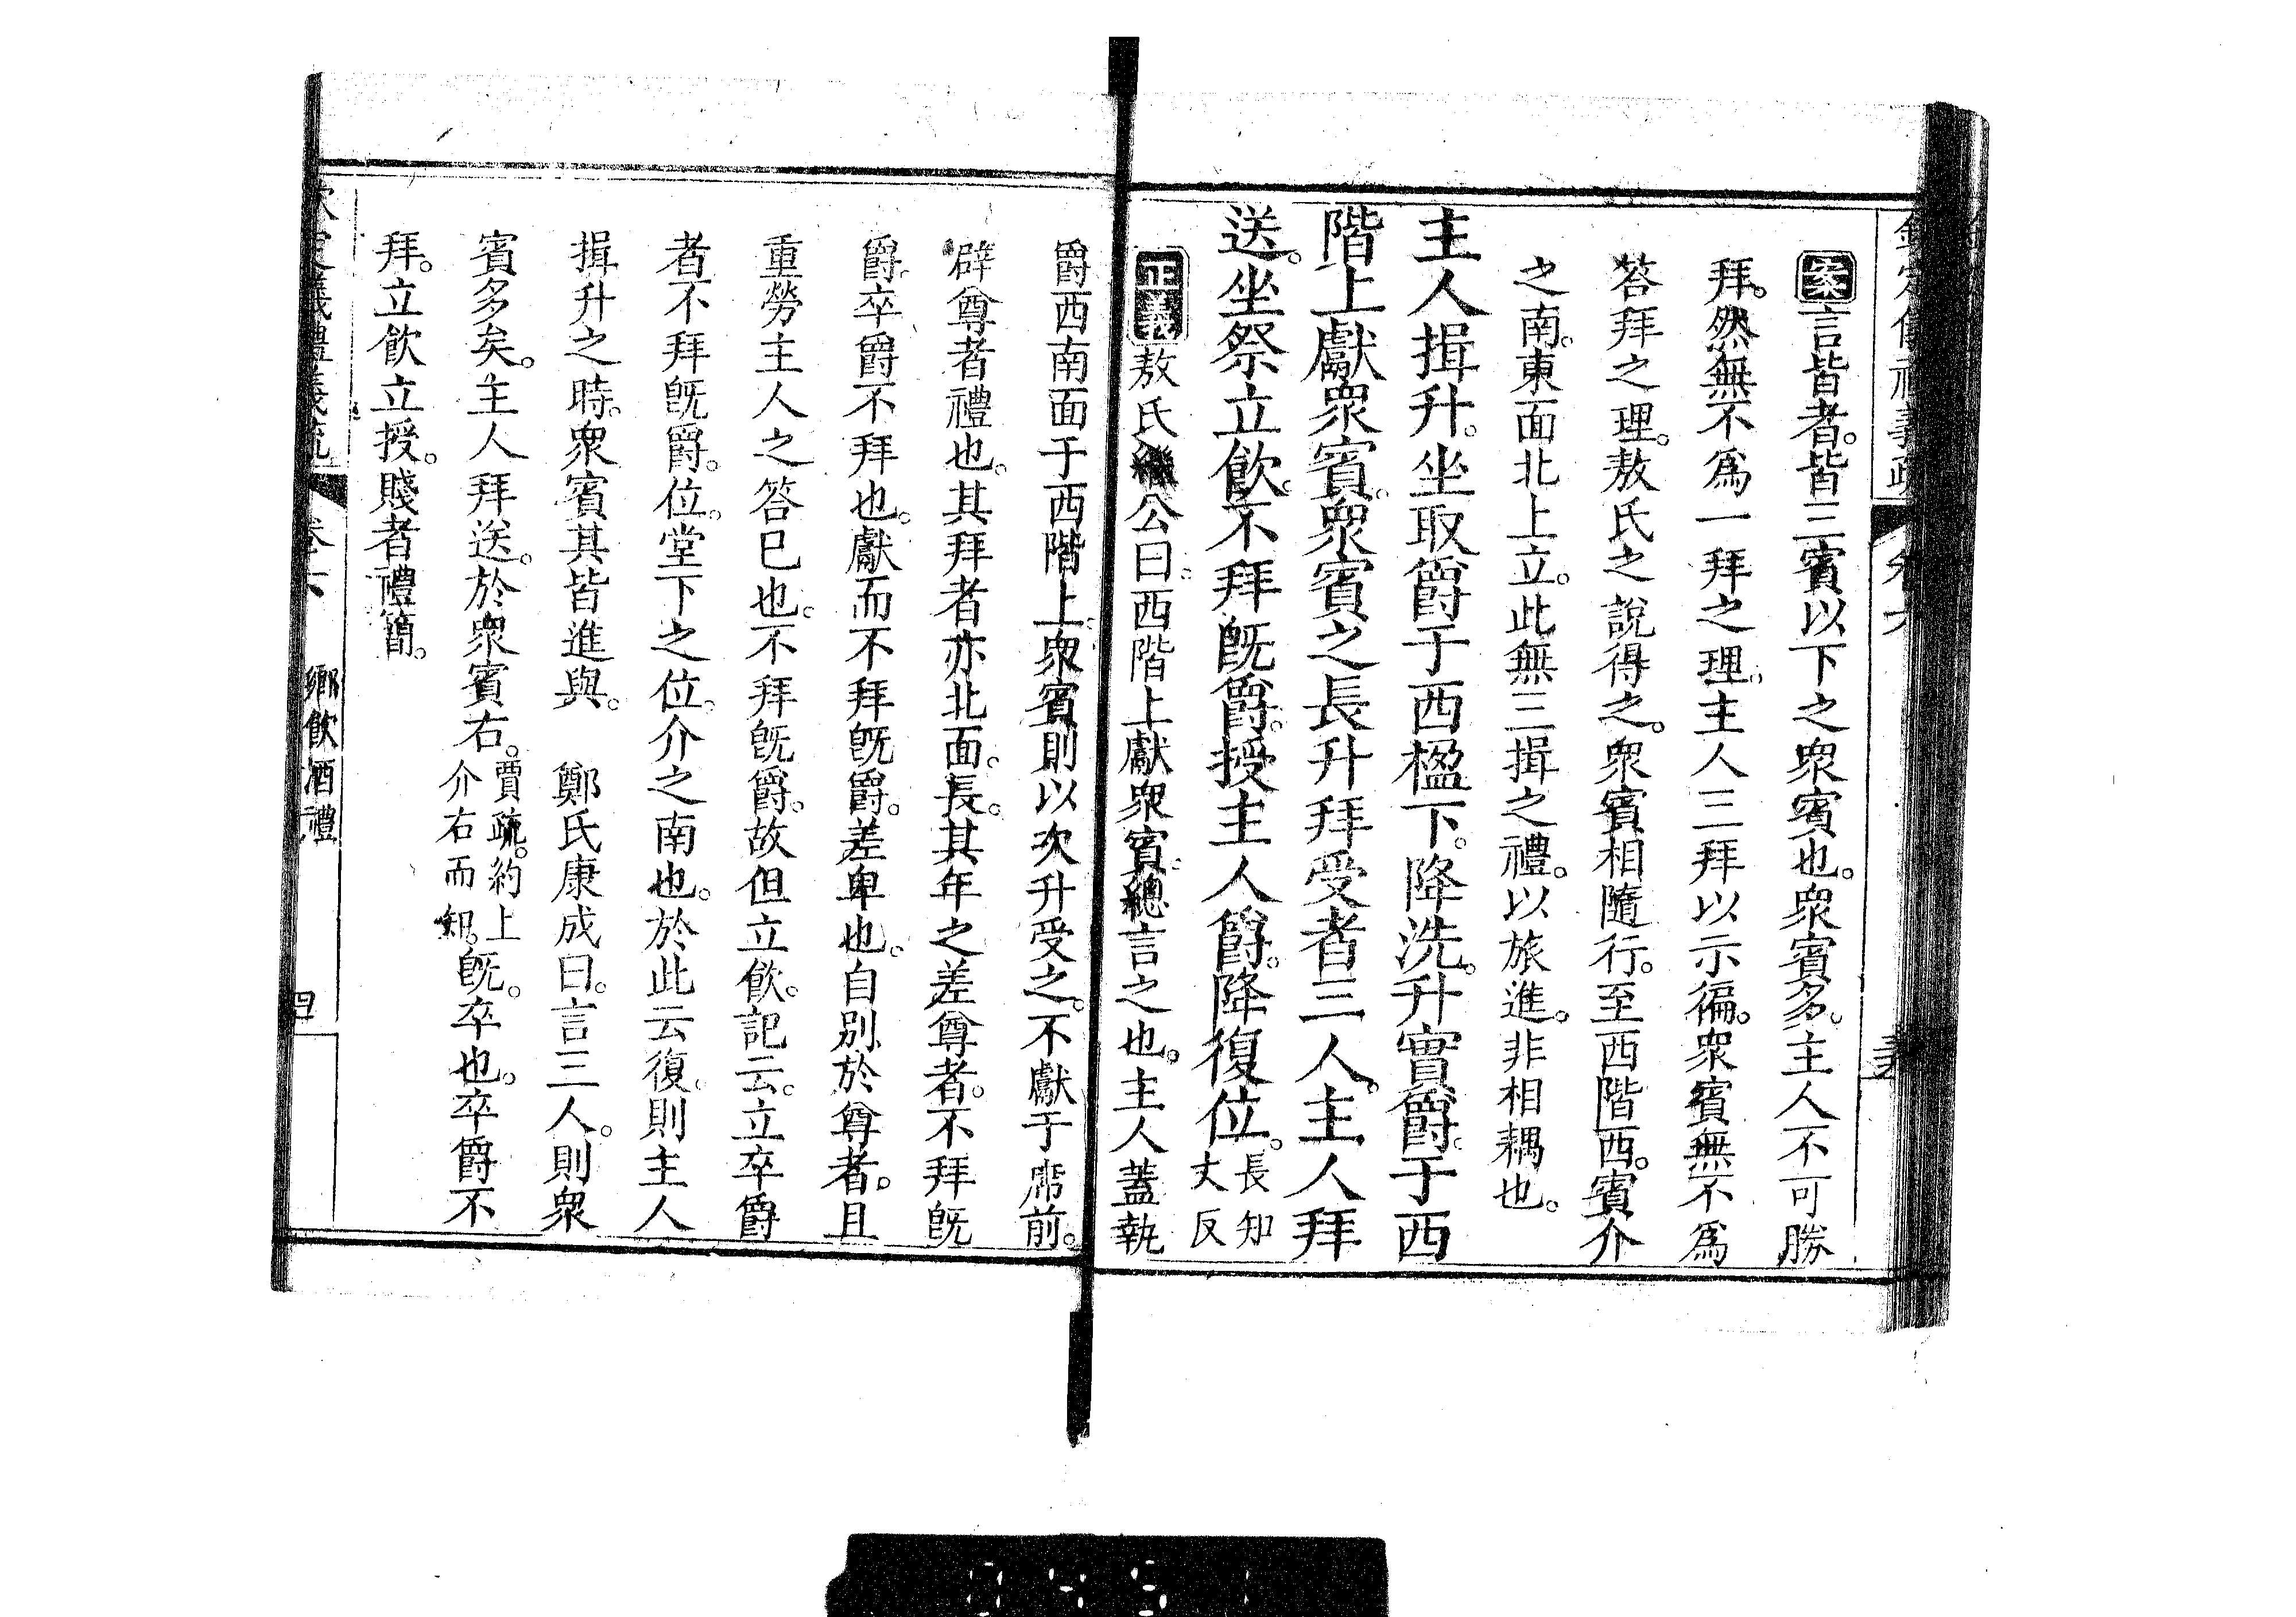 案言皆者。皆三賓以下之衆賓也。衆賓多。主人不可勝
拜。然無不爲一拜之理。主人三拜以示徧。衆賓無不爲
答拜之理。敖氏之說得之。衆賓相隨行。至西階西。賓介
之南。東面北上立。此無三揖之禮。以旅進。非相耦也。
主人揖升。坐取爵于西楹下。降洗。升實爵。于西
階上獻衆賓。衆賓之長升拜受者三人。主人拜
送。坐祭立飮。不拜旣爵。授主人爵。降復位。長知
丈反
正義敖氏繼公曰。西階上獻衆賓。總言之也。主人蓋執
爵西南面于西階上。衆賓則以次升受之。不獻于席前。
辟尊者禮也。其拜者亦北面。長。其年之差尊者。不拜旣
爵。卒爵不拜也。獻而不拜旣爵。差卑也。自別於尊者。且
重勞主人之答已也。不拜旣爵。故但立飮。記云。立卒爵
者不拜旣爵。位。堂下之位。介之南也。於此云復。則主人
揖升之時。衆賓其皆進與。 鄭氏康成曰。言三人。則衆
賓多矣。主人拜送。於衆賓右。賈疏。約上
介右而知。旣。卒也。卒爵不
拜。立飮立授。賤者禮簡。
義禮義疏 卷六 鄕飮酒禮 四